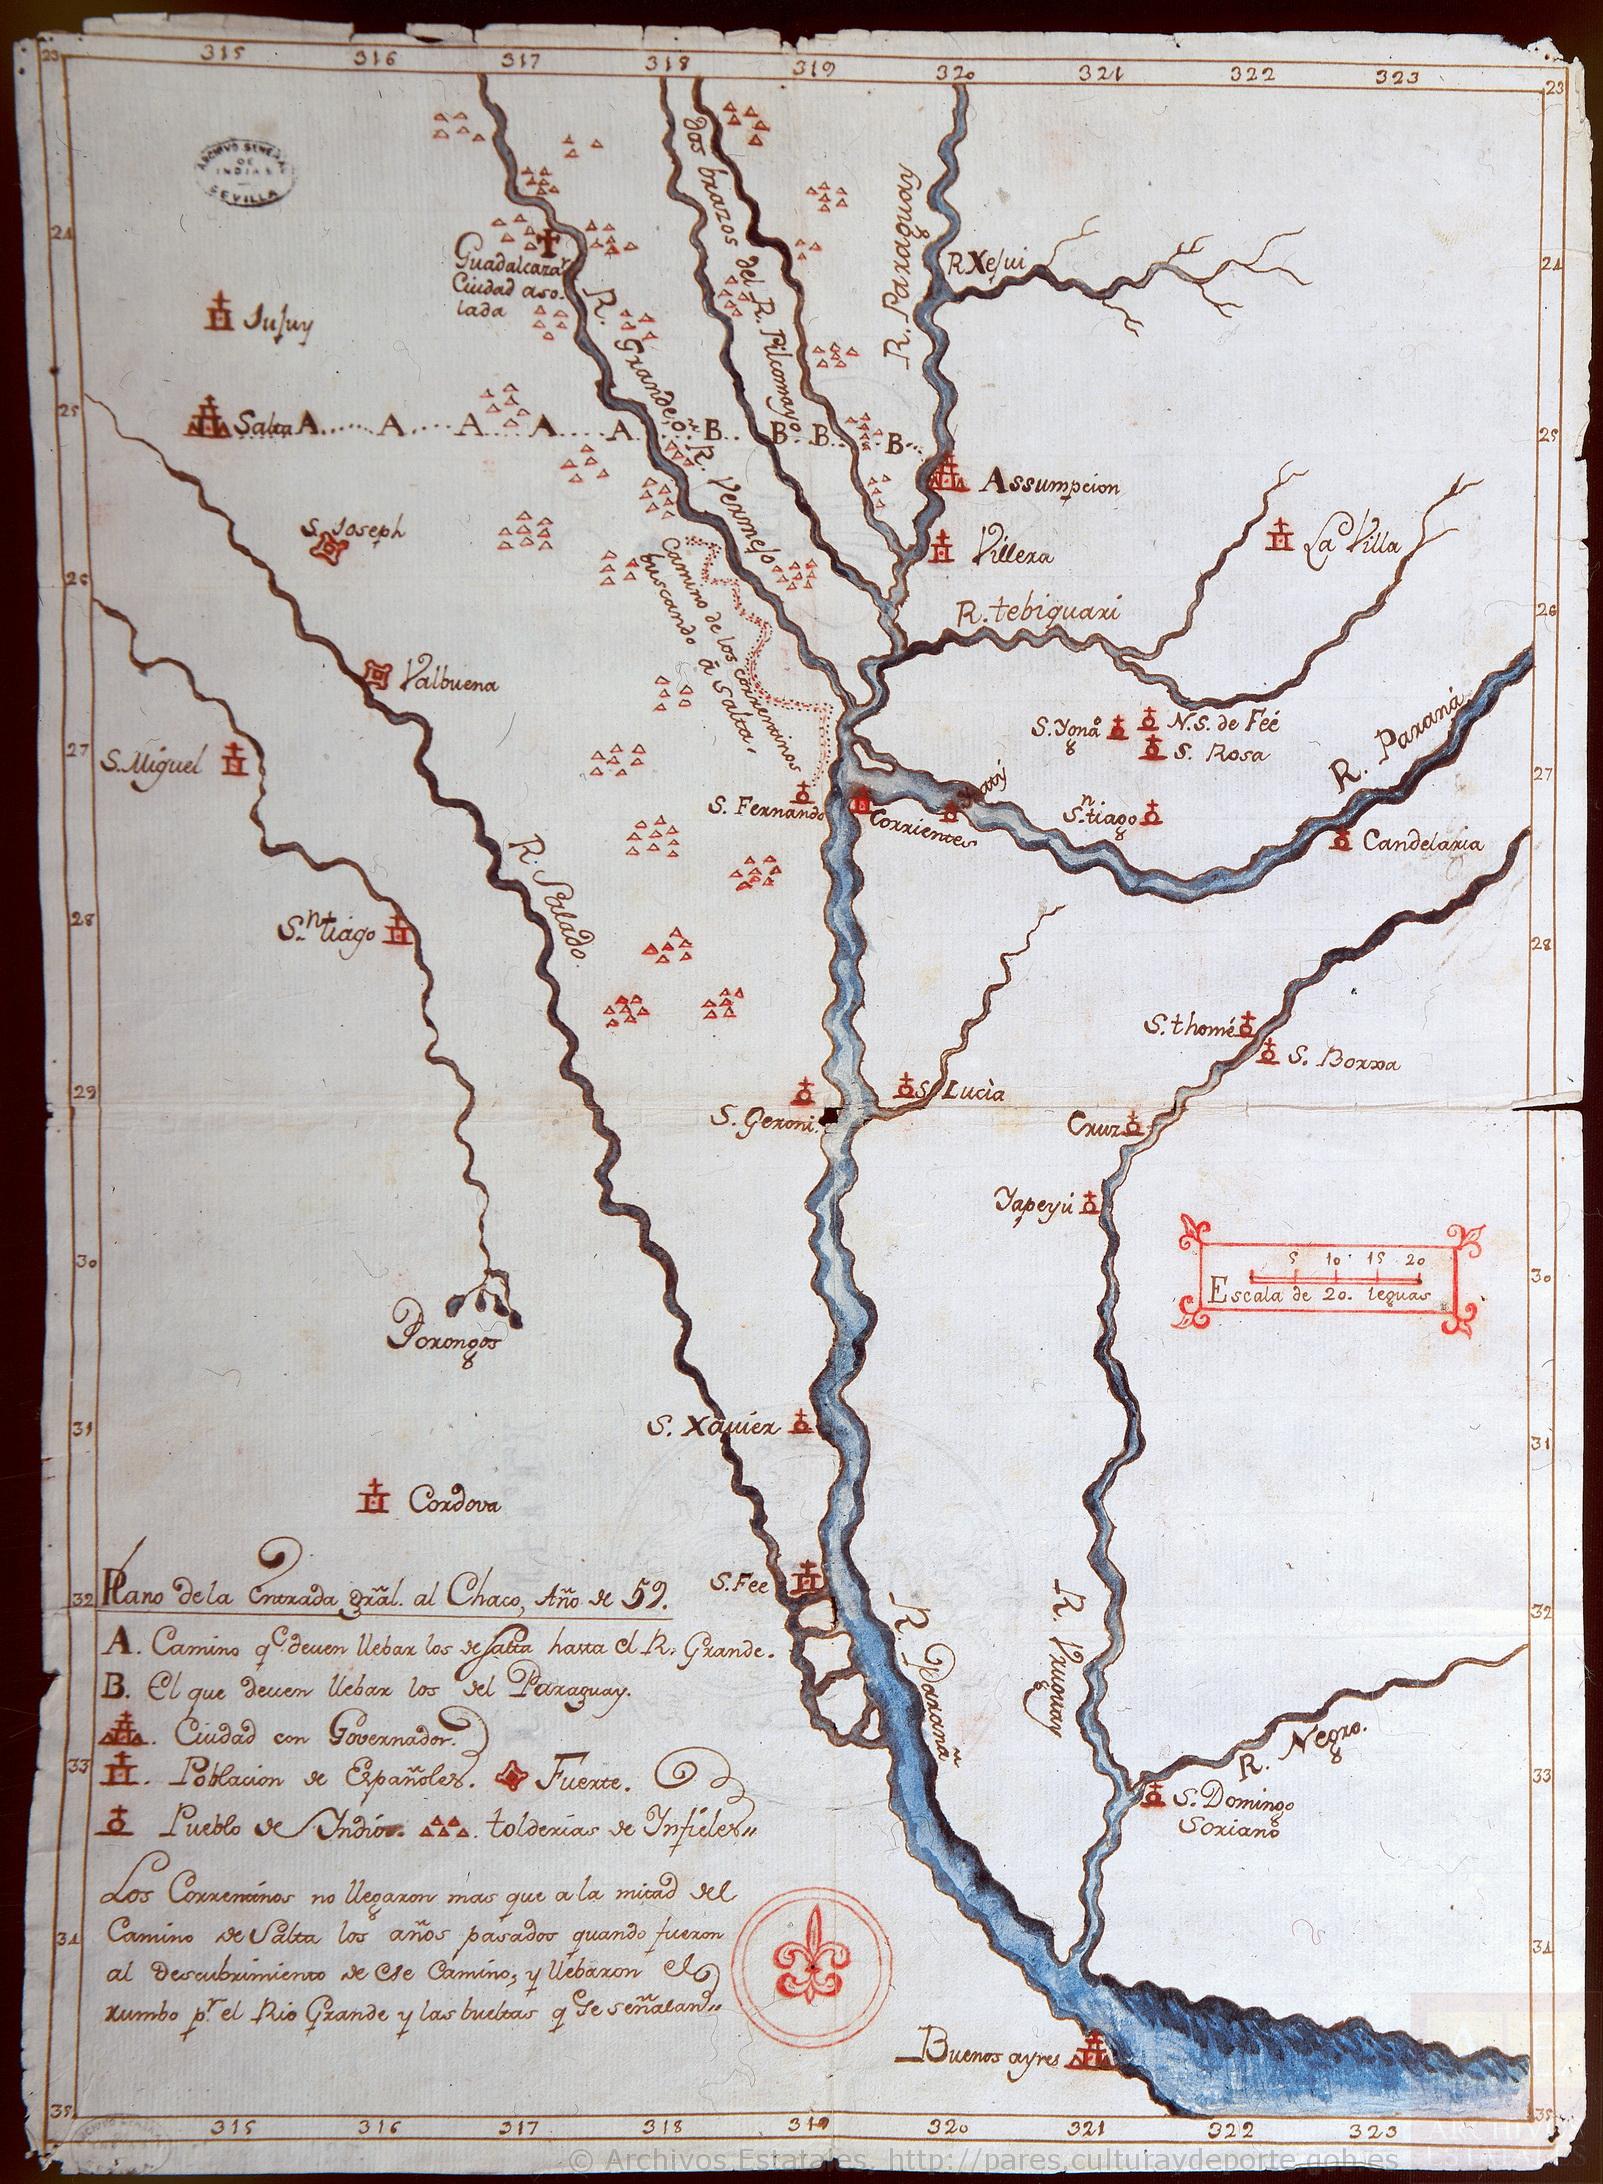 315 316 317 318 319 320 321 322 323
23 23
ARCHIVO GENERAL
DE
INDIAS
SEVILLA
dos brazos del R. Pilcomayo
R. Paraguay
24 24
R Xejui
Guadalcazar
Ciudad aso-
lada
Jujuy
R. Grande, o R. Vermejo
25 25
Salta A A A A A B B B B
Assumpcion
S. Joseph
Villera
La Villa
Camino de los correntinos
buscando â Salta.
26 26
R. tebiquari
Valbuena
S. Miguel
27 27
S. Ynº
N.S. de Feé
S. Rosa
R. Paraná
S. Fernando
Corrientes
Ytatý
S.ⁿtiago
Candelaria
R. Salado.
28 28
S.ⁿtiago
S. thomé
S. Borxa
29
S. Geroni.
S. Lucìa
Cruz
Yapeyú
30 30
5 10 15 20
Escala de 20. leguas
Porongos
31 31
S. Xavier
Cordova
32 32
S. Fee
R. Paraná
R. Vruguay
Plano de la Entrada grãl. al Chaco, Añ de 59.
A. Camino q.e deven llebar los de Salta hasta el R. Grande.
B. El que deven llebar los del Paraguay.
Ciudad con Governador.
33 33
Poblacion de Españoles. Fuerte.
Pueblo de Indios. tolderias de Infieles
R. Negro.
S. Domingo
Soriano
Los Correntinos no llegaron mas que a la mitad del
Camino de Salta los años pasados quando fueron
al descubrimiento de ese Camino; y llebaron el
rumbo p.r el Rio Grande y las bueltas q.e se señalan
34 34
Buenos ayres
35 35
315 316 317 318 319 320 321 322 323
© Archivos Estatales, http://pares.culturaydeporte.gob.es